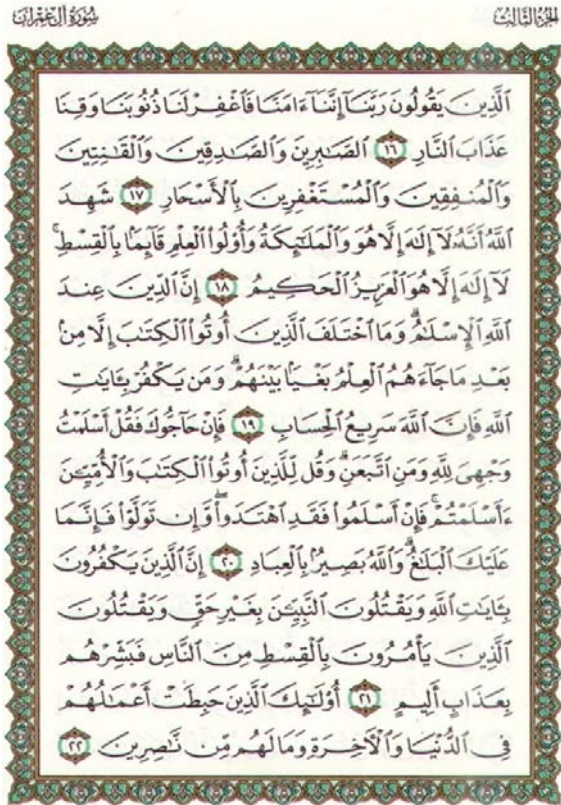 سُورَةُ آلِ عِمْرَانَ
الجُزْءُ الثَّالِثُ
ٱلَّذِينَ يَقُولُونَ رَبَّنَآ إِنَّنَآ ءَامَنَّا فَٱغْفِرْ لَنَا ذُنُوبَنَا وَقِنَا
عَذَابَ ٱلنَّارِ ١٦ ٱلصَّٰبِرِينَ وَٱلصَّٰدِقِينَ وَٱلْقَٰنِتِينَ
وَٱلْمُنفِقِينَ وَٱلْمُسْتَغْفِرِينَ بِٱلْأَسْحَارِ ١٧ شَهِدَ
ٱللَّهُ أَنَّهُۥ لَآ إِلَٰهَ إِلَّا هُوَ وَٱلْمَلَٰٓئِكَةُ وَأُو۟لُوا۟ ٱلْعِلْمِ قَآئِمًۢا بِٱلْقِسْطِ ۚ
لَآ إِلَٰهَ إِلَّا هُوَ ٱلْعَزِيزُ ٱلْحَكِيمُ ١٨ إِنَّ ٱلدِّينَ عِندَ
ٱللَّهِ ٱلْإِسْلَٰمُ ۗ وَمَا ٱخْتَلَفَ ٱلَّذِينَ أُوتُوا۟ ٱلْكِتَٰبَ إِلَّا مِنۢ
بَعْدِ مَا جَآءَهُمُ ٱلْعِلْمُ بَغْيًۢا بَيْنَهُمْ ۗ وَمَن يَكْفُرْ بِـَٔايَٰتِ
ٱللَّهِ فَإِنَّ ٱللَّهَ سَرِيعُ ٱلْحِسَابِ ١٩ فَإِنْ حَآجُّوكَ فَقُلْ أَسْلَمْتُ
وَجْهِىَ لِلَّهِ وَمَنِ ٱتَّبَعَنِ ۗ وَقُل لِّلَّذِينَ أُوتُوا۟ ٱلْكِتَٰبَ وَٱلْأُمِّيِّـۧنَ
ءَأَسْلَمْتُمْ ۚ فَإِنْ أَسْلَمُوا۟ فَقَدِ ٱهْتَدَوا۟ ۖ وَّإِن تَوَلَّوْا۟ فَإِنَّمَا
عَلَيْكَ ٱلْبَلَٰغُ ۗ وَٱللَّهُ بَصِيرٌۢ بِٱلْعِبَادِ ٢٠ إِنَّ ٱلَّذِينَ يَكْفُرُونَ
بِـَٔايَٰتِ ٱللَّهِ وَيَقْتُلُونَ ٱلنَّبِيِّـۧنَ بِغَيْرِ حَقٍّ وَيَقْتُلُونَ
ٱلَّذِينَ يَأْمُرُونَ بِٱلْقِسْطِ مِنَ ٱلنَّاسِ فَبَشِّرْهُم
بِعَذَابٍ أَلِيمٍ ٢١ أُو۟لَٰٓئِكَ ٱلَّذِينَ حَبِطَتْ أَعْمَٰلُهُمْ
فِى ٱلدُّنْيَا وَٱلْءَاخِرَةِ وَمَا لَهُم مِّن نَّٰصِرِينَ ٢٢